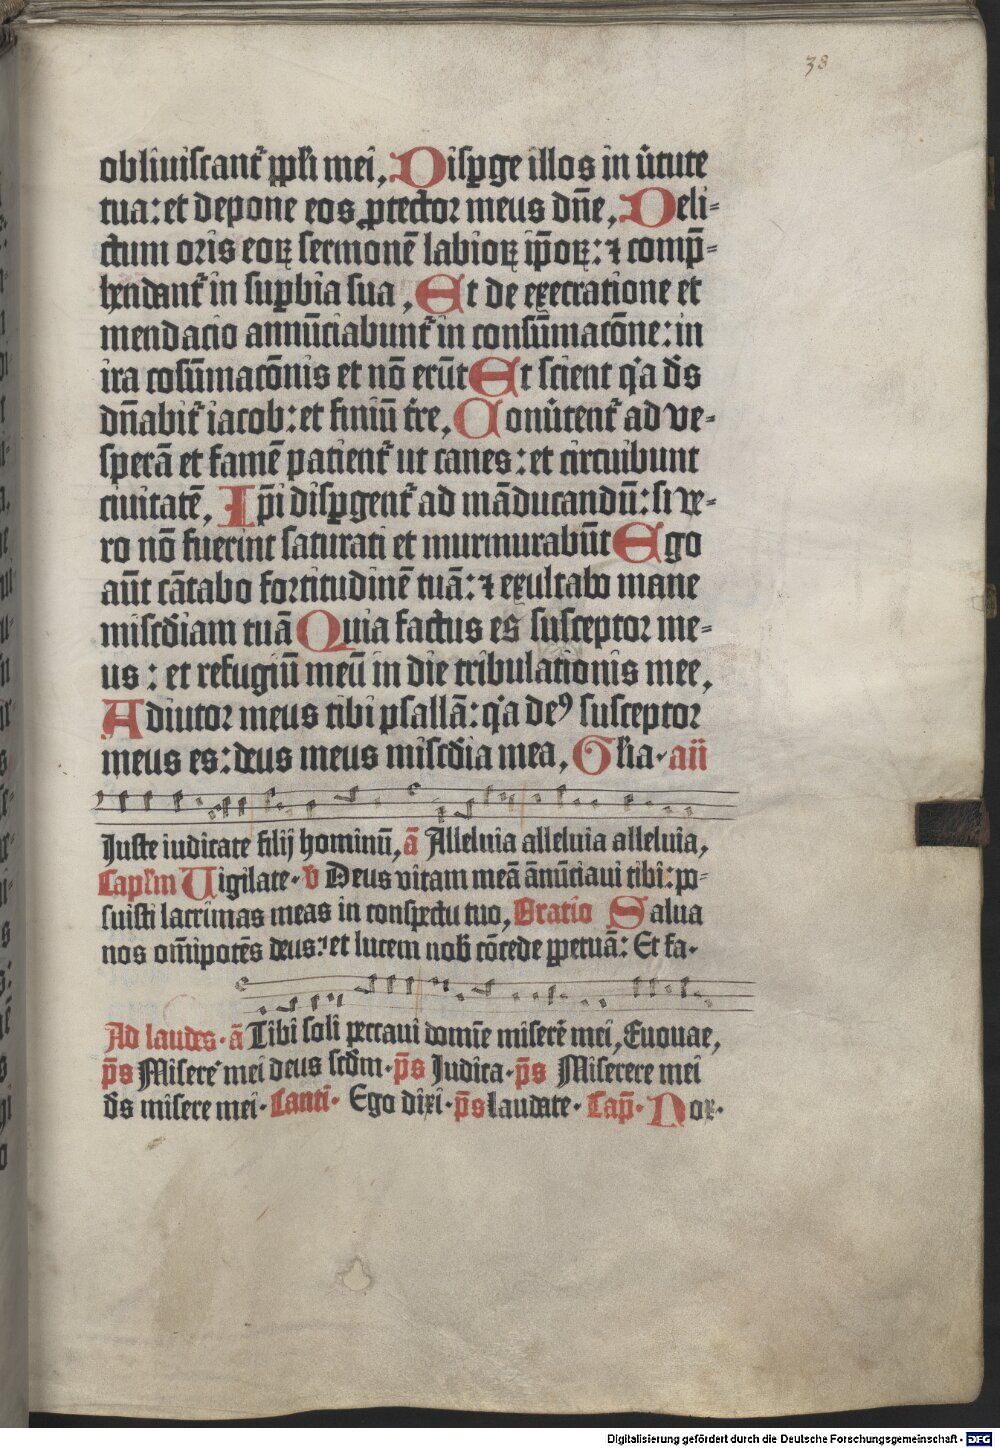 38
obliuiscant᷑ ppl̄i mei, Disp̱ge illos in v̄tute
tua: et depone eos ꝓtector meus dn̄e, Deli-
ctum oris eoꝝ sermonē labioꝝ ip̄oꝝ: ⁊ comp̄-
hendant᷑ in sup̱bia sua, Et de execratione et
mendacio annūciabunt᷑ in consūmacōne: in
ira cōsūmacōnis et nō erūt Et scient q̄a ds̄
dn̄abit᷑ iacob: et finiū tr̄e, Conūtent᷑ ad ve-
sperā et famē patient᷑ ut canes: et circuibunt
ciuitatē, Ip̄i disp̱gent᷑ ad māducandū: si ve-
ro nō fuerint saturati et murmurabūt Ego
aūt cātabo fortitudinē tuā: ⁊ exultabo mane
miscd̄iam tuā Quia factus es susceptor me-
us: et refugiū meū in die tribulationis mee,
Adiutor meus tibi psallā: q̄a deꝰ susceptor
meus es: deus meus miscd̄ia mea, Gl̄ia. an̄
Juste iudicate filij hominū, ā Alleluia alleluia alleluia,
Capl̄m Uigilate. v̄ Deus vitam meā ānūciaui tibi: po-
suisti lacrimas meas in conspectu tuo, Oratio Salua
nos om̄ipotēs deus: et lucem nob̄ cōcede ꝑpetuā: Et fa.
Ad laudes. ā Tibi soli peccaui domīe miserē mei, Euouae,
p̄s Miserē mei deus scd̄m. p̄s Judica. p̄s Miserere mei
ds̄ misere mei. Canti. Ego dixi. p̄s laudate. Cap̄. Nox.
Digitalisierung gefördert durch die Deutsche Forschungsgemeinschaft - DFG